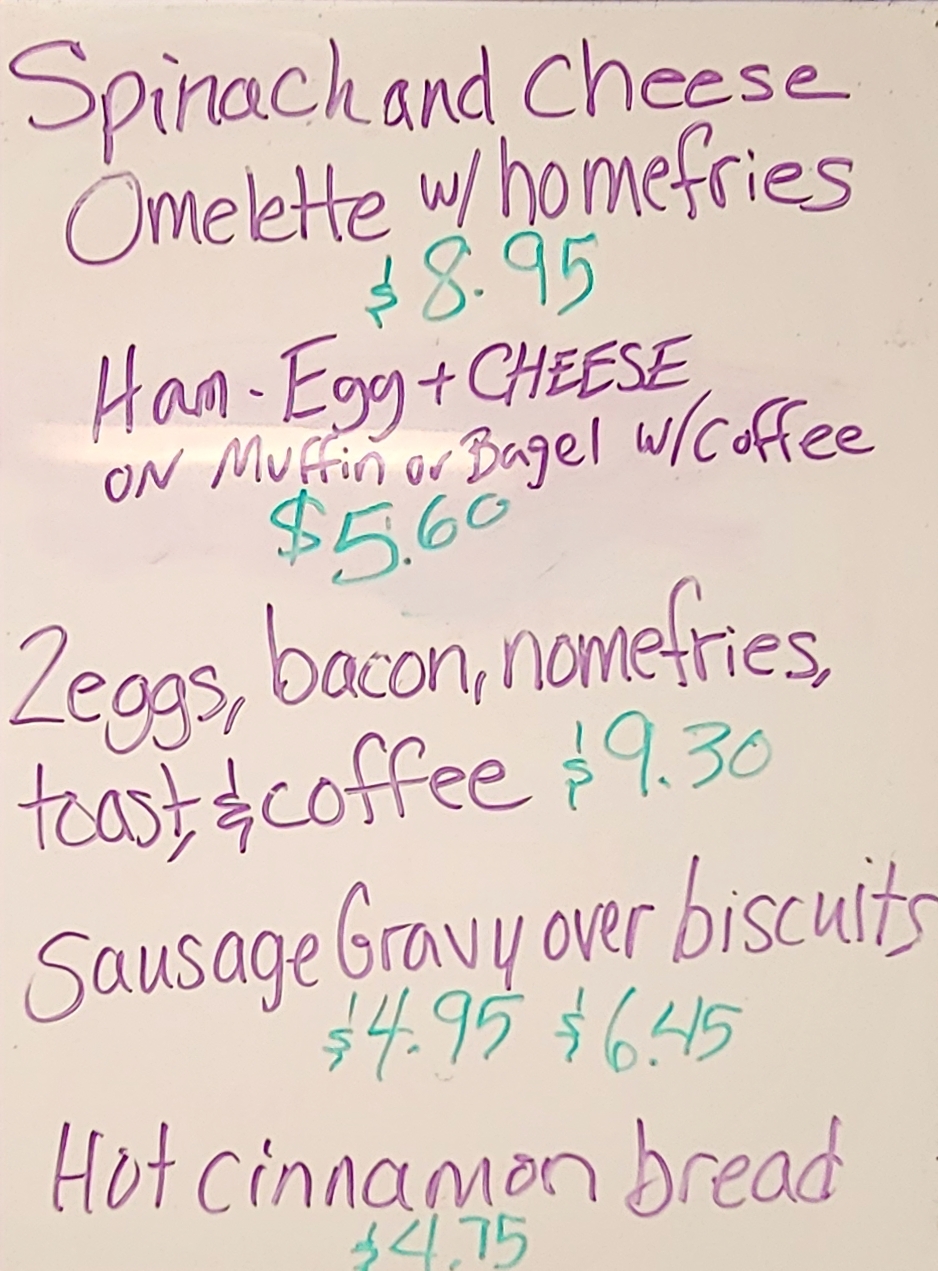 Spinach and Cheese
Omelette w/ homefries
$8.95
Ham - Egg + CHEESE
ON Muffin or Bagel w/coffee
$5.60
2eggs, bacon, homefries,
toast, & coffee $9.30
Sausage Gravy over biscuits
$4.95 $6.45
Hot cinnamon bread
$4.75